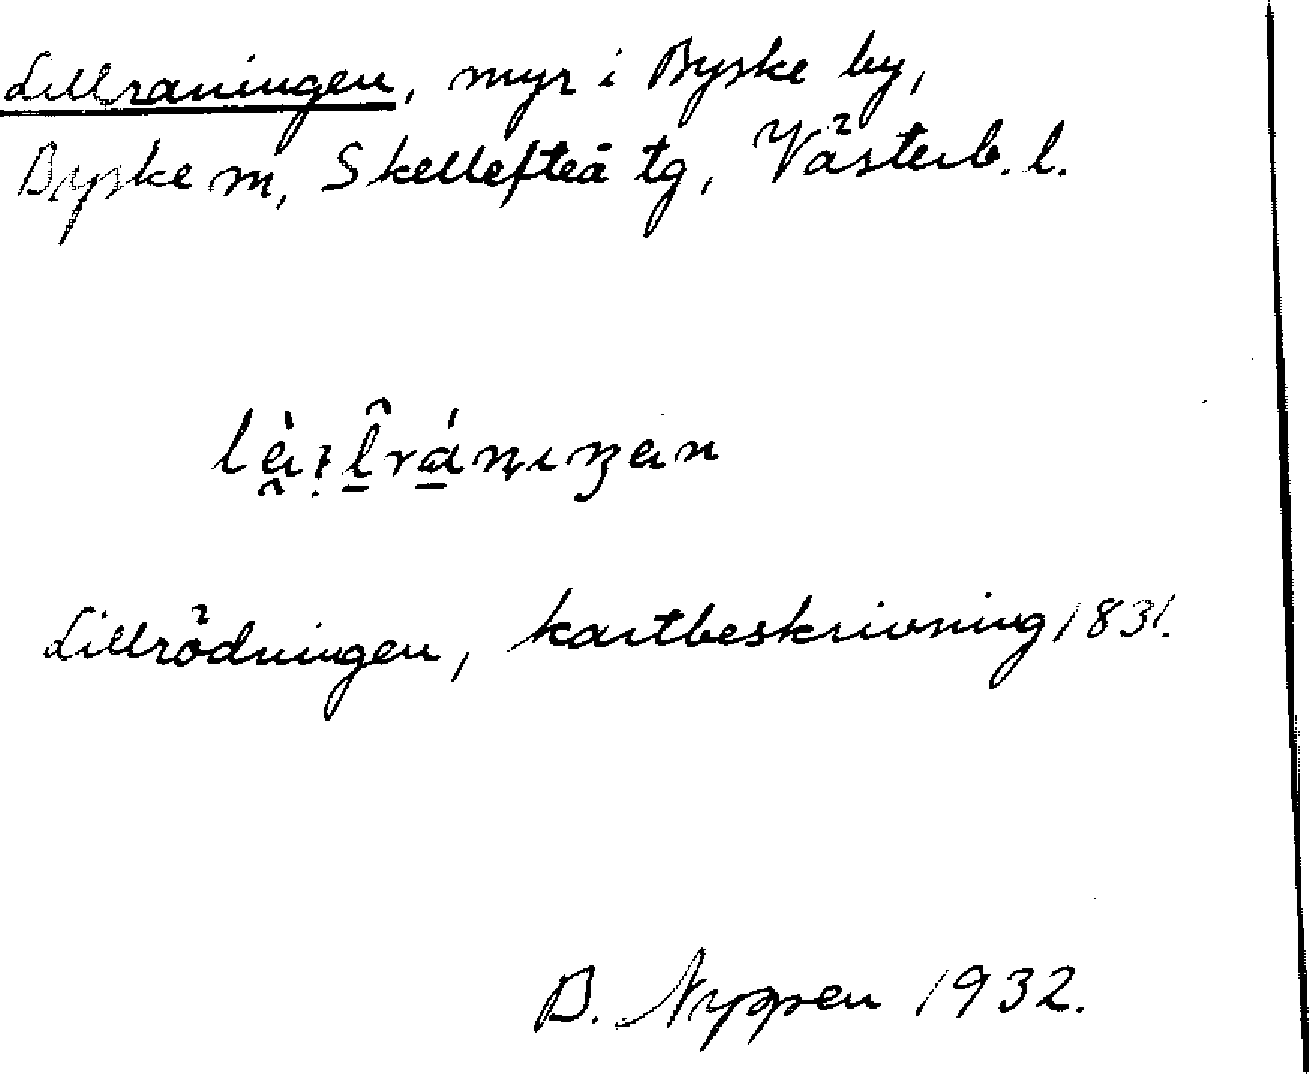 Lillraningen, myr i Byske by,
Byske m, Skellefteå tg, Västerb. l.
Lillrödningen, kartbeskrivning 1831.
B. Nyppen 1932.